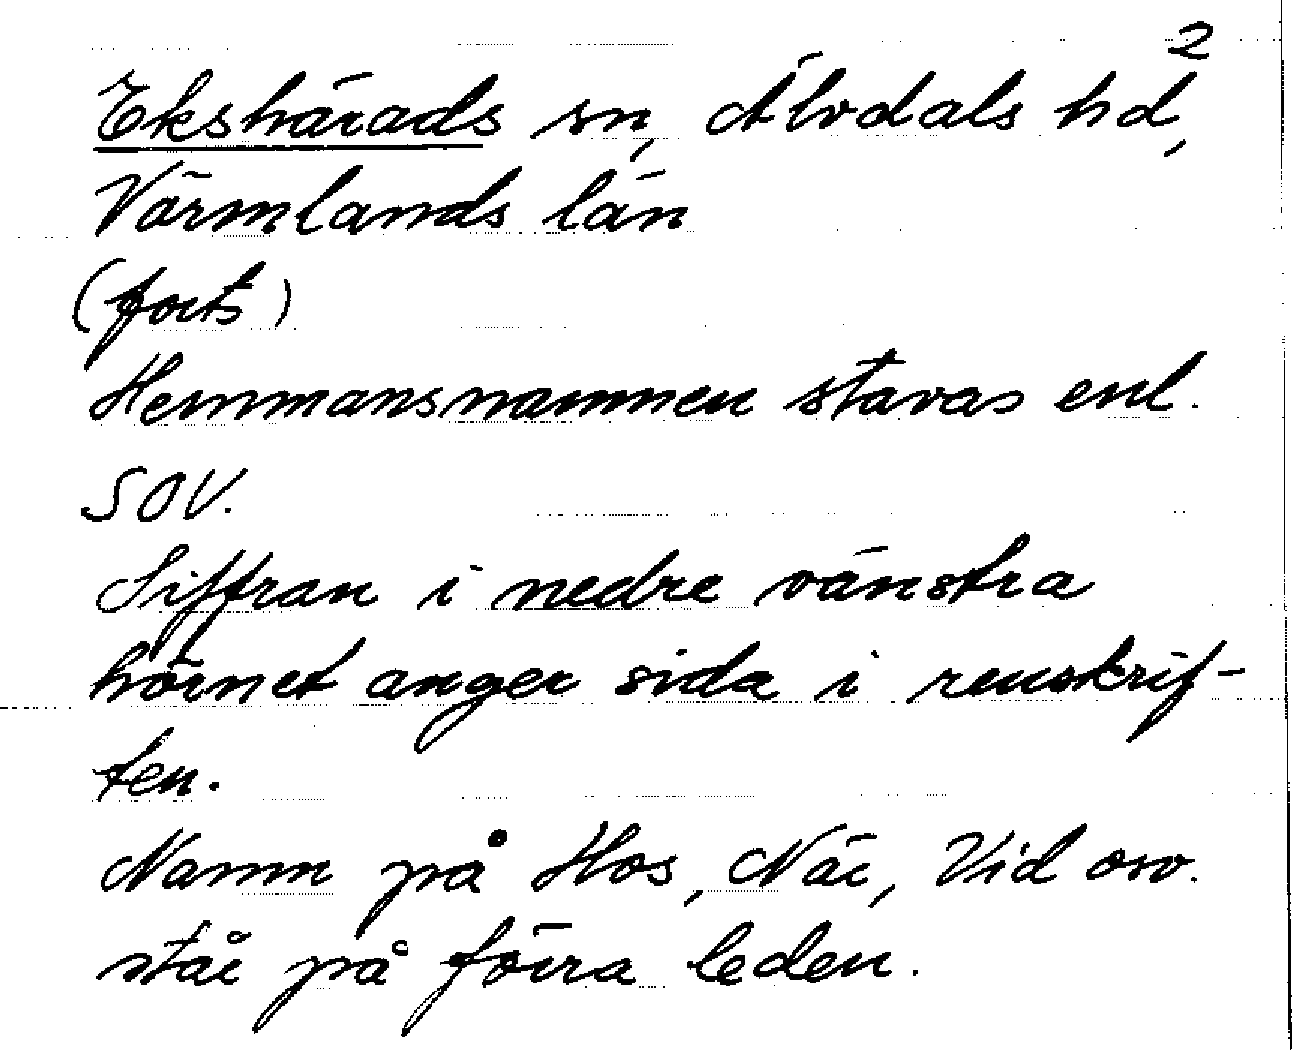 2
Ekshärads sn, Älvdals hd,
Värmlands län
(forts)
Hemmansnamnen stavas enl.
SOV.
Siffran i nedre vänstra
hörnet anger sida i renskrif-
ten.
Namn på Hos, När, Vid osv.
står på förra leden.